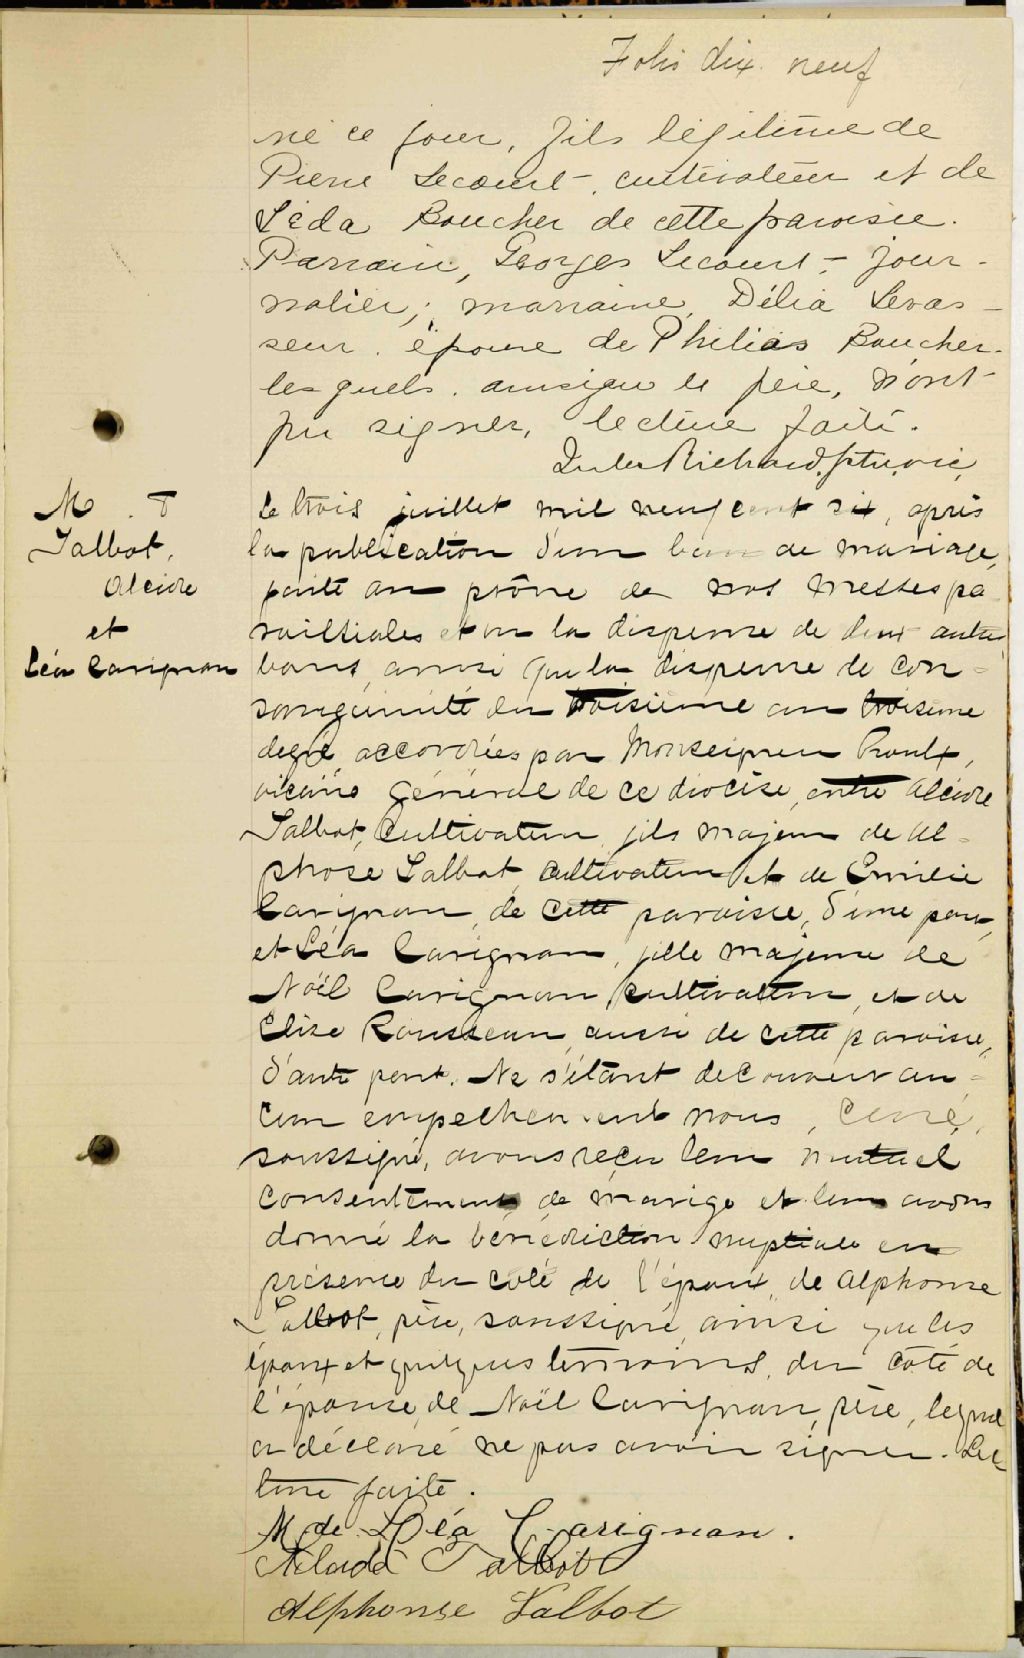 Folio dix neuf
né ce jour, fils légitime de
Pierre Lecourt, cultivateur et de
Léda Boucher de cette paroisse.
Parrain, Georges Lecourt, jour-
nalier; marraine, Délia Levas-
seur, épouse de Philias Boucher
lesquels, ainsique le père, n'ont
pu signer, lecture faite.
Jules Richard, ptre, vic.
M. 7
Talbot,
Alcide
et
Léa Carignan
Le trois juillet mil neuf cent six, après
la publication d'un ban de mariage,
faite au prône de nos messes pa
roissiales et vu la dispense de deux autres
bans, ainsi que la dispense de con-
sanguinité du troisième au troisième
degré accordées par Monseigneur Proulx,
vicaire général de ce diocèse, entre Alcide
Talbot, cultivateur, fils majeur de Al-
phose Talbot, cultivateur et de Emilie
Carignan, de cette paroisse, d'une part,
et Léa Carignan, fille majeure de
Noël Carignan, cultivateur, et de
Elise Rousseau, aussi de cette paroisse,
d'autre part. Ne s'étant découvert au-
cun empechement nous, curé,
soussigné, avons reçu leur mutuel
consentement de mariage et leur avons
donné la bénédiction nuptiale en
présence du coté de l'époux, de Alphonse
Talbot, père, soussigné, ainsi que les
époux et quelques témoins, du côté de
l'épouse, de Noël Carignan, père, lequel
a déclaré ne pas savoir signer. Lec-
ture faite.
M de Léa Carignan.
Talbot
Alphonse Talbot